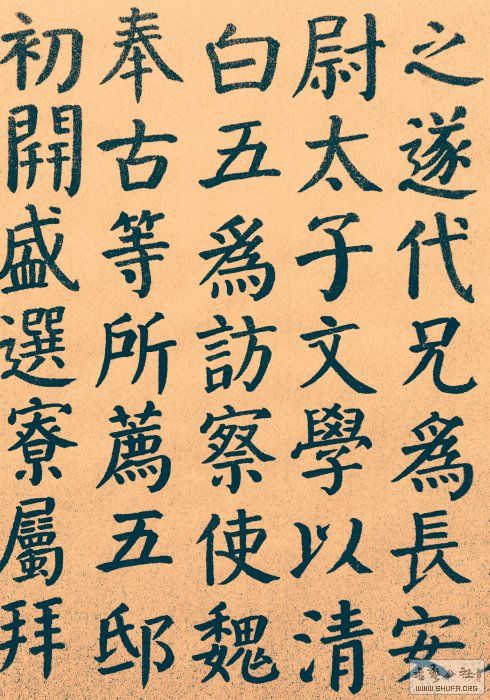 之遂代兄爲長安
尉太子文學以清
白五爲訪察使魏
奉古等所薦五邸
初開盛選寮屬拜
WWW.SHUFA.ORG